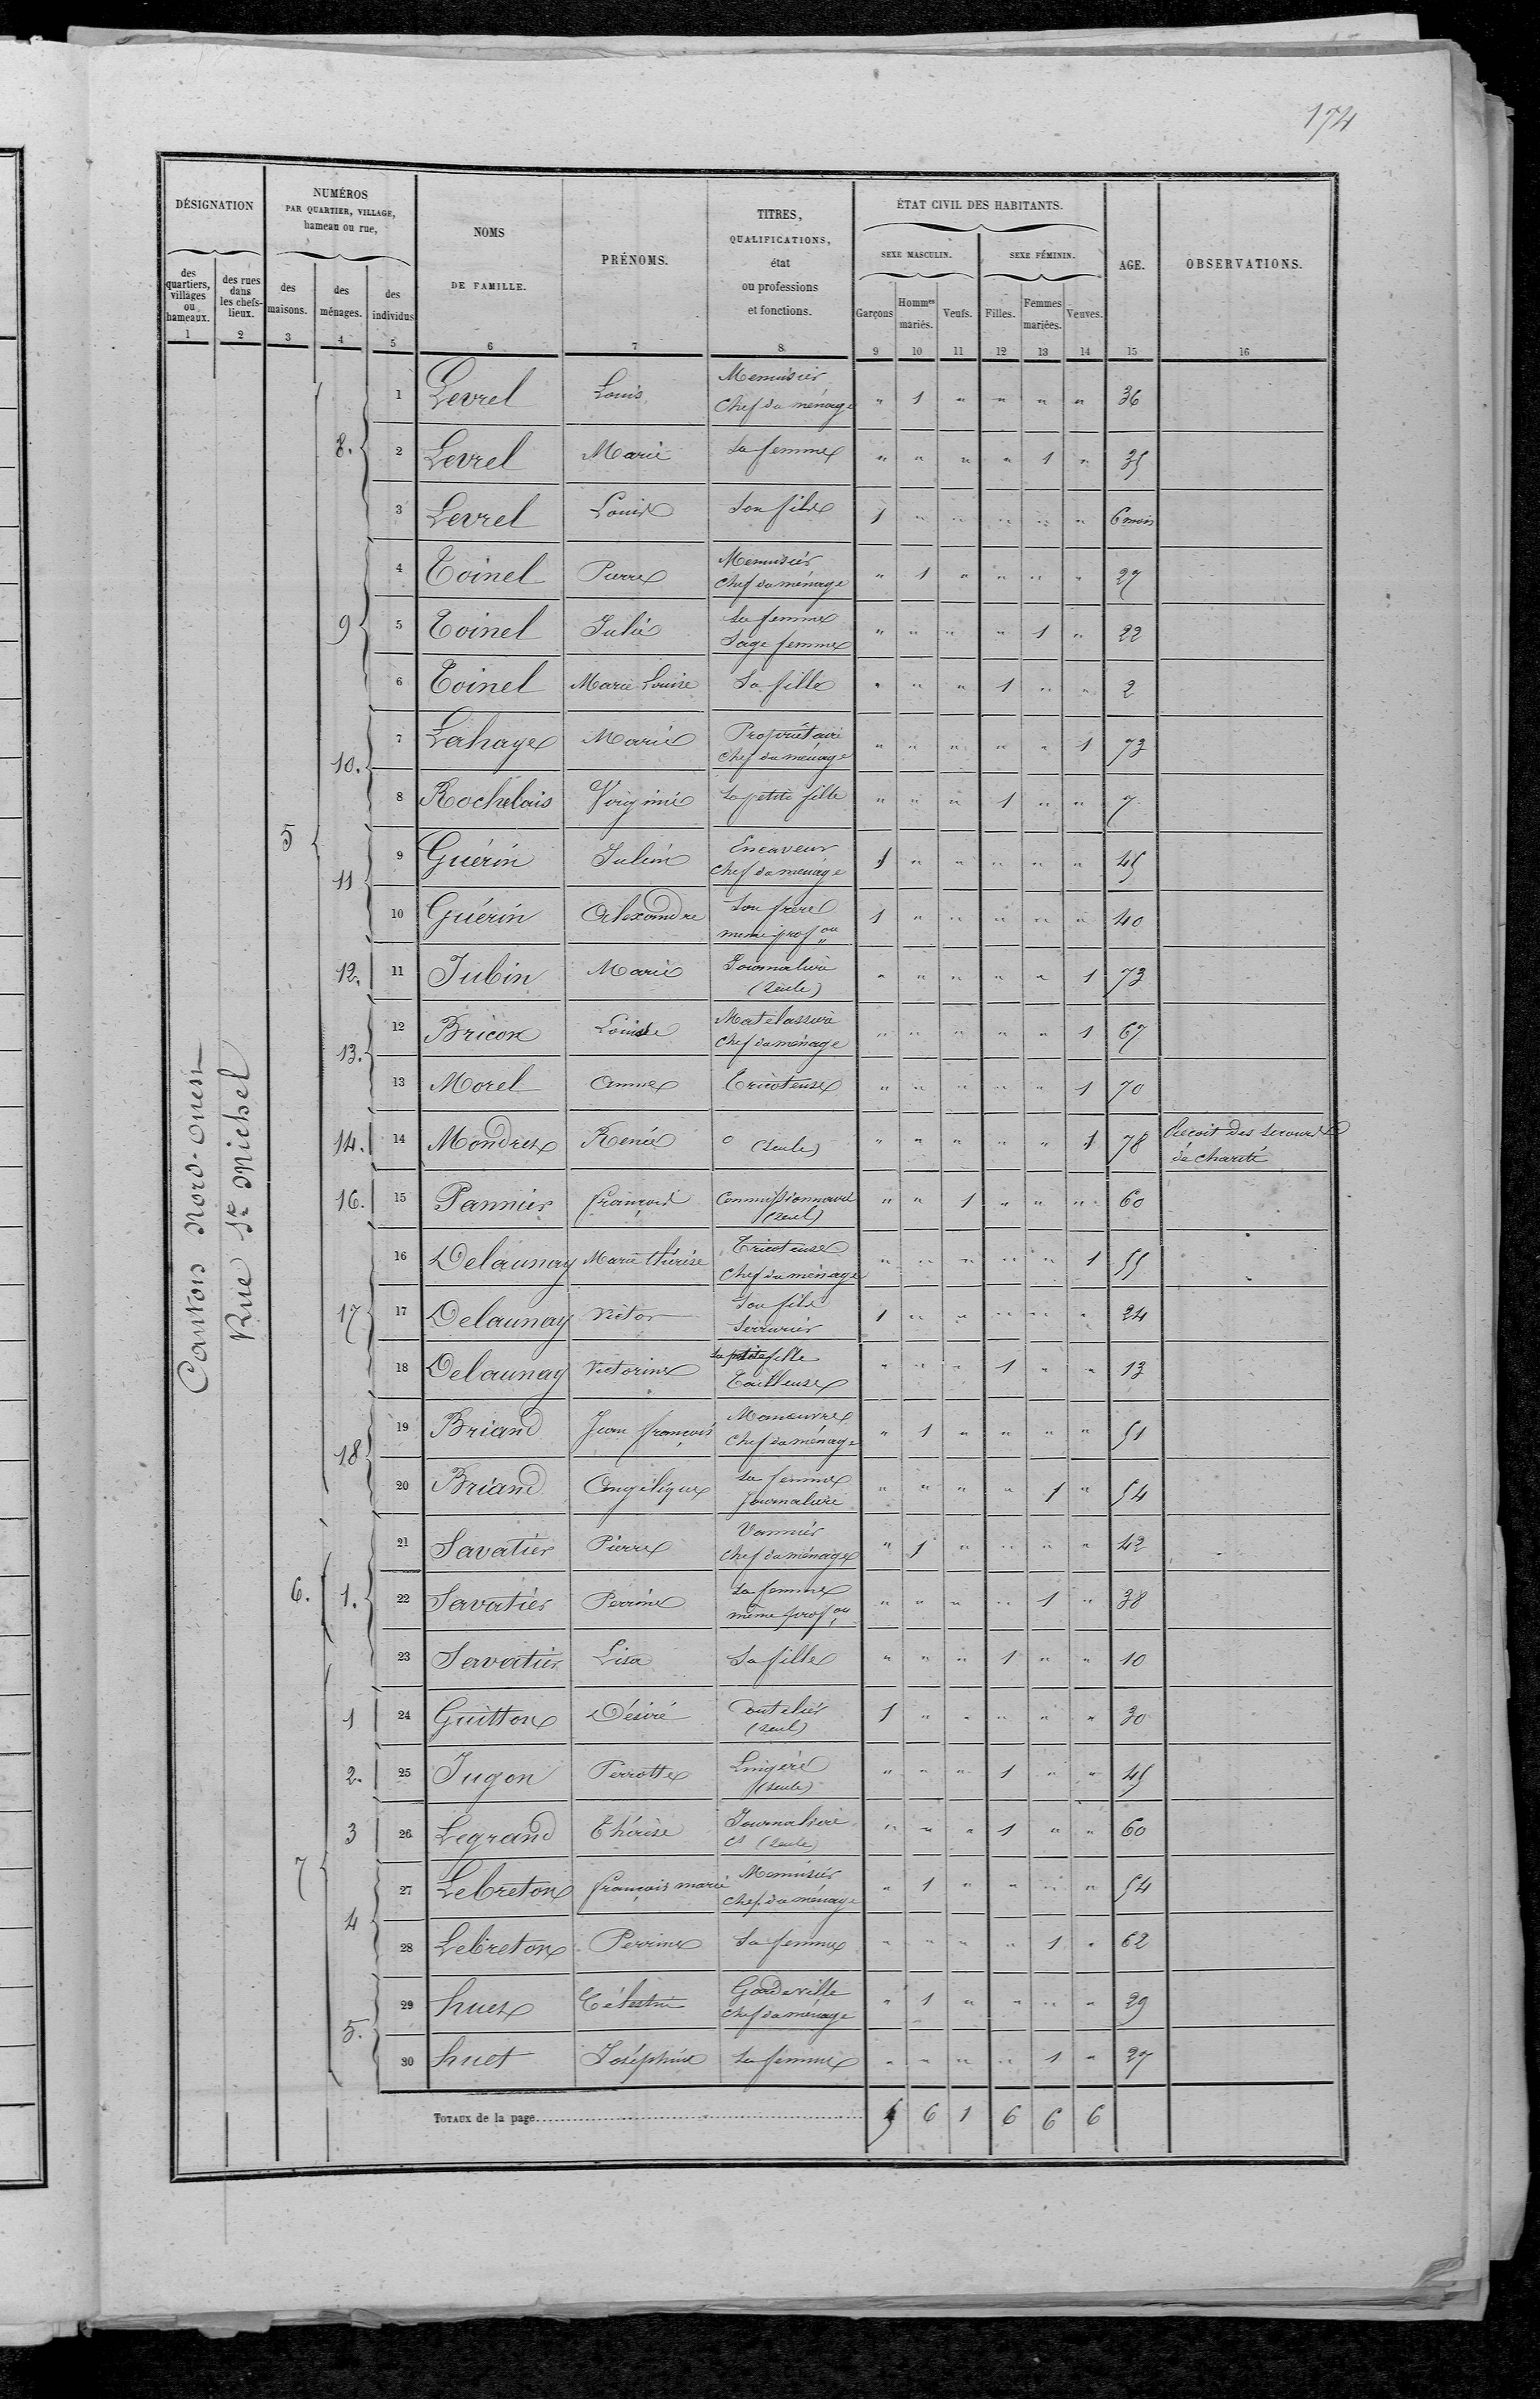 174
DÉSIGNATION
NUMÉROS
PAR QUARTIER, VILLAGE,
hameau ou rue,
NOMS
DE FAMILLE.
PRÉNOMS.
TITRES,
QUALIFICATIONS,
état
ou professions
et fonctions.
ÉTAT CIVIL DES HABITANTS.
SEXE MASCULIN.
SEXE FÉMININ.
AGE.
OBSERVATIONS.
des quartiers, villages ou hameaux.
des rues dans les chefs-lieux.
des maisons.
des ménages.
des individus
Garçons
Hommes mariés.
Veufs.
Filles.
Femmes mariées.
Veuves.
1 2 3 4 5 6 7 8 9 10 11 12 13 14 15 16
Canton Nord-Ouest
Rue St Michel
5
8. 1 Levrel Louis Menuisier Chef du ménage " 1 " " " " 36
2 Levrel Marie Sa femme " " " " 1 " 35
3 Levrel Louis Son fils 1 " " " " " 6 mois
9 4 Toinel Pierre Menuisier Chef du ménage " 1 " " " " 27
5 Toinel Julie Sa femme Sage femme " " " " 1 " 22
6 Toinel Marie Louise Sa fille " " " 1 " " 2
10. 7 Lahaye Marie Propriétaire Chef du ménage " " " " " 1 73
8 Rochelais Virginie Sa petite fille " " " 1 " " 7
11 9 Guérin Julien Encaveur Chef du ménage 1 " " " " " 45
10 Guérin Alexandre Son frère même profon 1 " " " " " 40
12. 11 Jubin Marie Journalière (seule) " " " " " 1 73
13. 12 Bricon Louise Matelassière Chef du ménage " " " " " 1 67
13 Morel Anne Tricoteuse " " " " " 1 70
14. 14 Mondrex Renée o (seule) " " " " " 1 78 Reçoit des secours de charité
16. 15 Pannier françois Commissionnaire (seul) " " 1 " " " 60
17 16 Delaunay Marie thérèse Tricoteuse Chef du ménage " " " " " 1 55
17 Delaunay Victor Son fils Serrurier 1 " " " " " 24
18 Delaunay Victorine Sa petite fille Tailleuse " " " 1 " " 13
18 19 Briand Jean françois Manœuvre Chef du ménage " 1 " " " " 51
20 Briand Angélique Sa femme Journalière " " " " 1 " 54
6. 1. 21 Savatier Pierre Vannier Chef du ménage " 1 " " " " 42
22 Savatier Perrine Sa femme même profon " " " " 1 " 38
23 Savatier Lisa Sa fille " " " 1 " " 10
7
1 24 Guitton Désiré Coutelier (seul) 1 " " " " " 30
2. 25 Jugon Perrotte Lingère (seule) " " " 1 " " 45
3 26 Legrand Thérèse Journalière (seule) " " " 1 " " 60
4 27 Lebreton françois marie Menuisier Chef du ménage " 1 " " " " 54
28 Lebreton Perrine Sa femme " " " " 1 " 62
5. 29 huet Célestin Gardeville Chef du ménage " 1 " " " " 29
30 huet Joséphine Sa femme " " " " 1 " 27
TOTAUX de la page 5 6 1 6 6 6